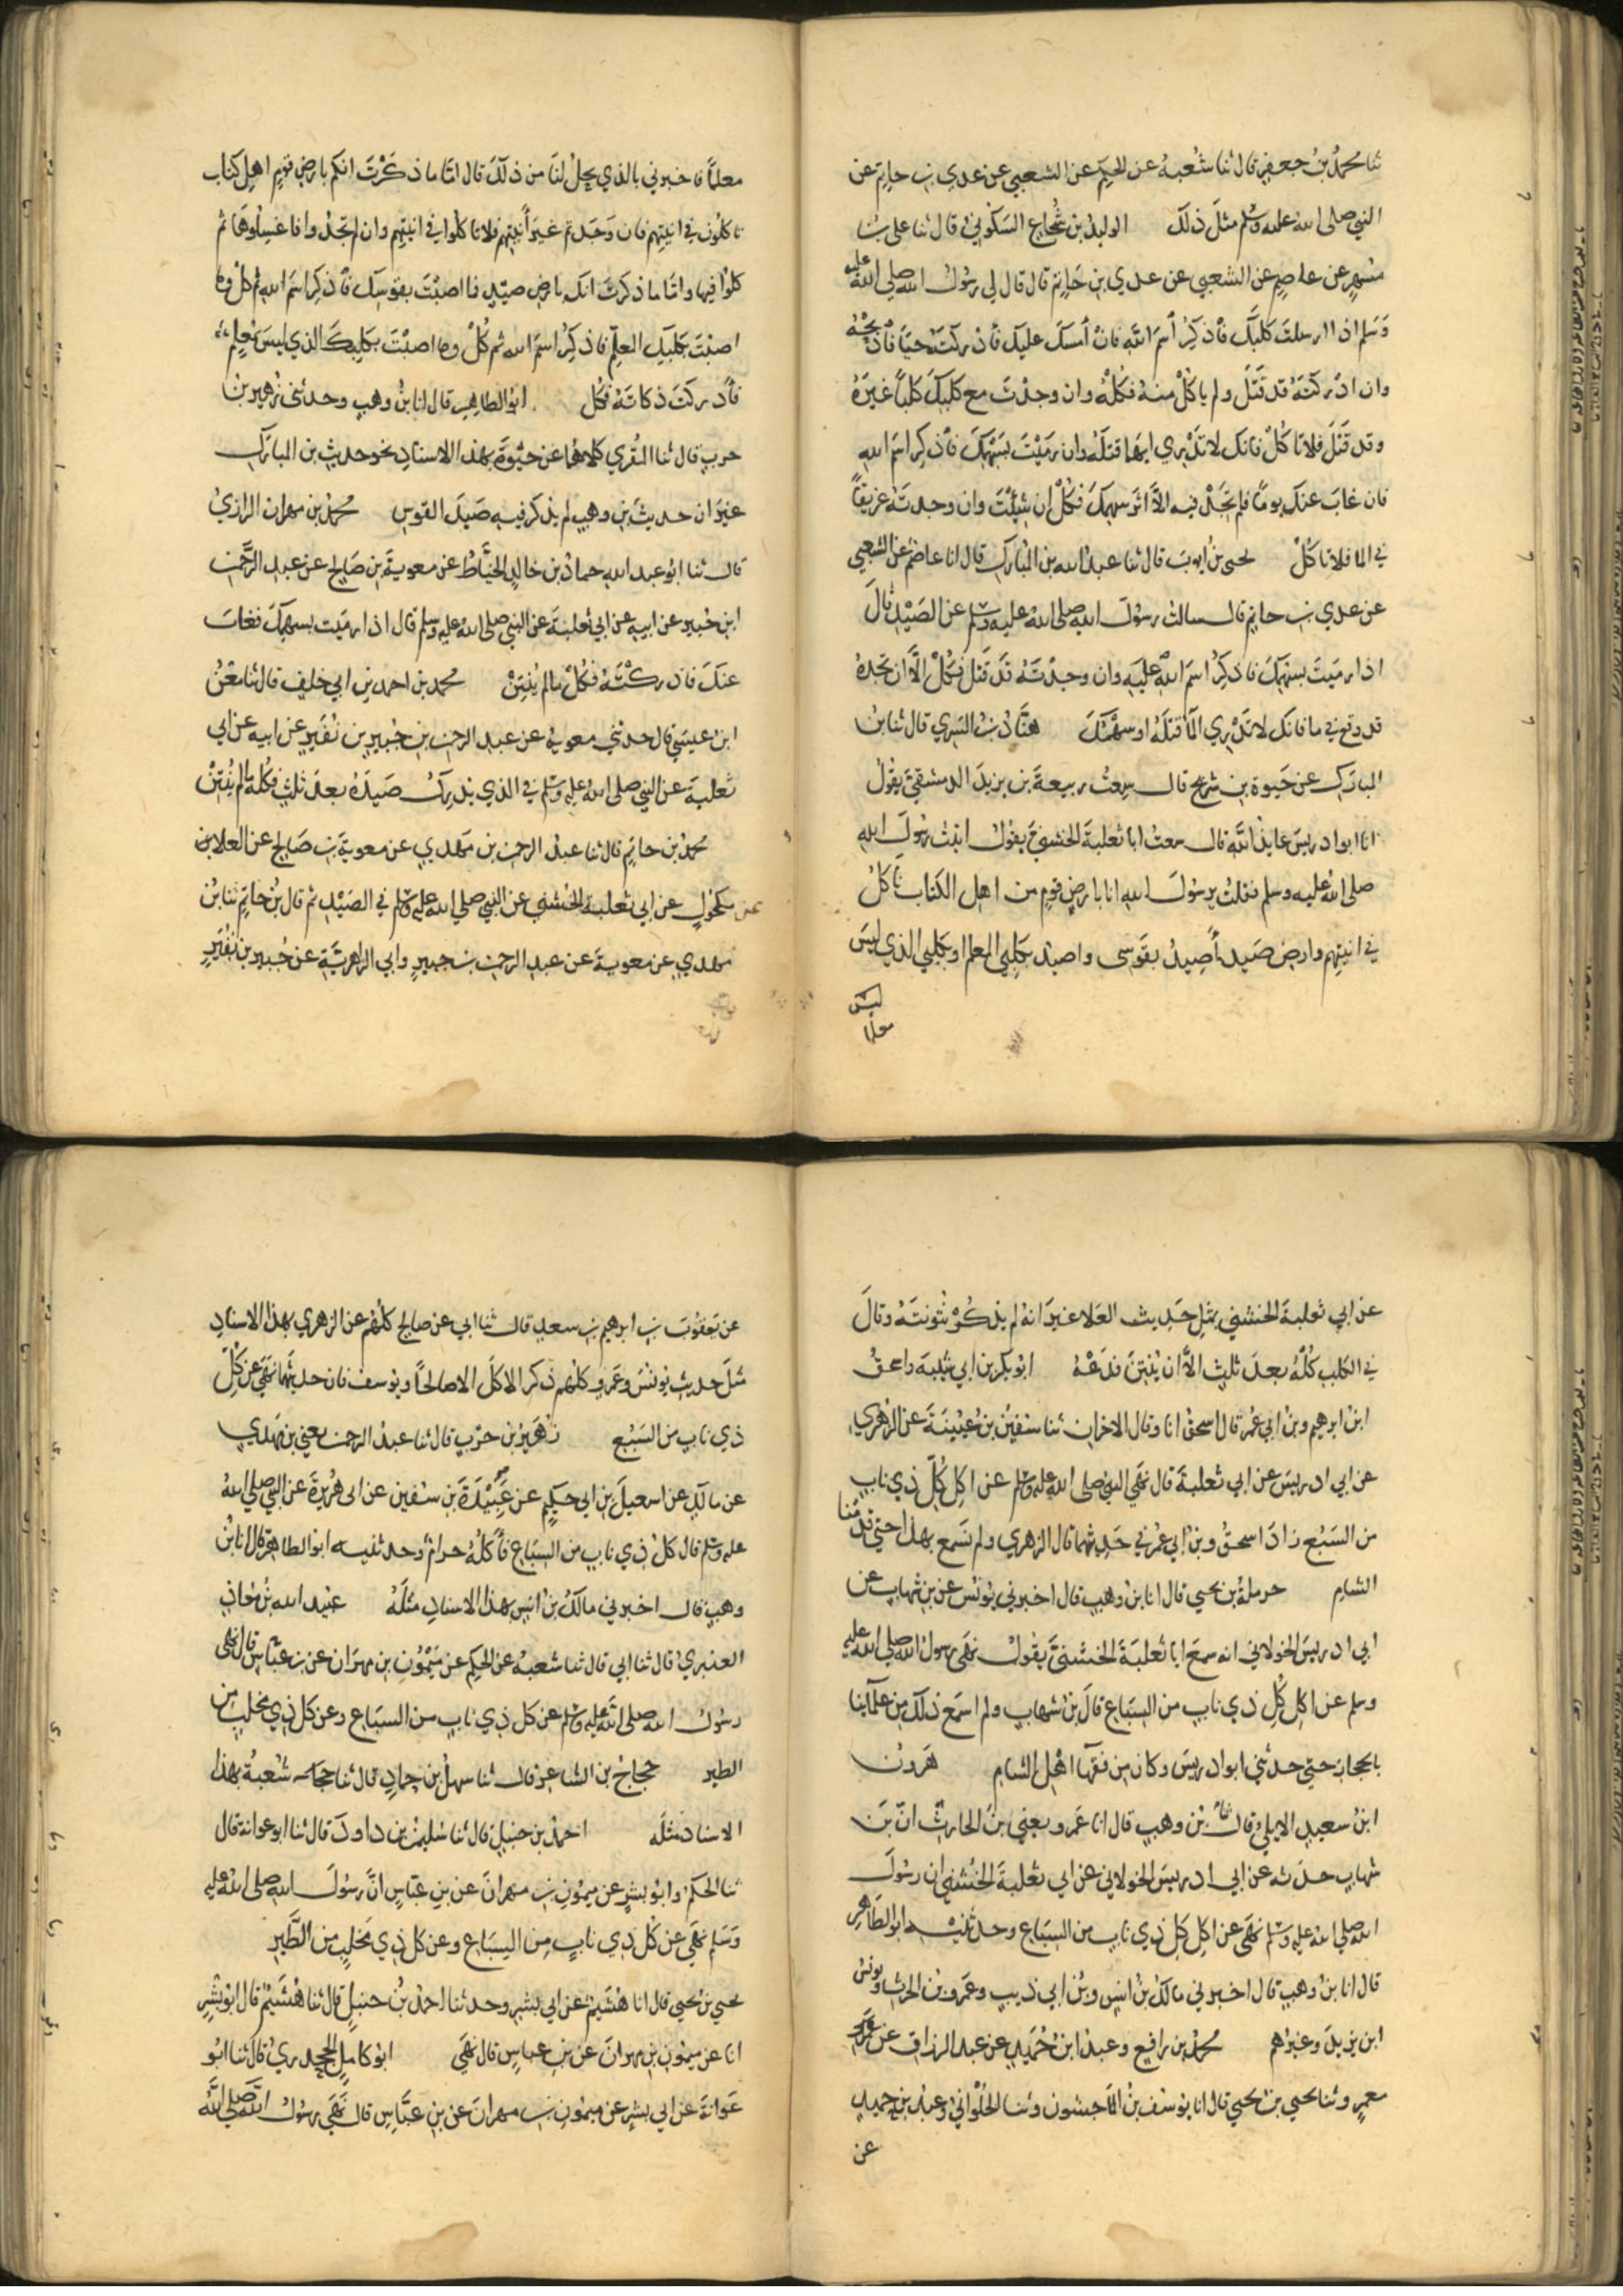 ثنا محمد بن جعفر قال ثنا شعبة عن الحكم عن الشعبي عن عدي بن حاتم عن
النبي صلى الله عليه وسلم مثل ذلك الوليد بن شجاع السكوني قال ثنا علي بن
مسهر عن عاصم عن الشعبي عن عدي بن حاتم قال قال لي رسول الله صلى الله عليه
وسلم اذا ارسلت كلبك فاذكر اسم الله فان امسك عليك فادركته حيا فاذبحه
وان ادركته قد قتل ولم ياكل منه فكله وان وجدت مع كلبك كلبا غيره
وقد قتل فلا تاكل فانك لا تدري ايهما قتله وان رميت بسهمك فاذكر اسم الله
فان غاب عنك يوما فلم تجد فيه الا اثر سهمك فكل ان شئت وان وجدته غريقا
في الما فلا تاكل يحيى بن ايوب قال ثنا عبد الله بن المبارك قال انا عاصم عن الشعبي
عن عدي بن حاتم قال سالت رسول الله صلى الله عليه وسلم عن الصيد قال
اذا رميت بسهمك فاذكر اسم الله عليه وان وجدته قد قتل فكل الا ان تجده
قد وقع في ما فانك لا تدري الما قتله او سهمك هناد بن السري قال ثنا بن
المبارك عن حيوة بن شريح قال سمعت ربيعة بن يزيد الدمشقي يقول
انا ابو ادريس عايذ الله قال سمعت ابا ثعلبة الخشني يقول اتيت رسول الله
صلى الله عليه وسلم فقلت يرسول الله انا بارض قوم من اهل الكتاب ناكل
في انيتهم وارض صيد اصيد بقوسي واصيد بكلبي المعلم او بكلبي الذي ليس
معلما فاخبرني بالذي يحل لنا من ذلك قال اما ما ذكرت انكم بارض قوم اهل كتاب
تاكلون في انيتهم فان وجدتم غير انيتهم فلا تاكلوا في انيتهم وان لم تجدوا فاغسلوها ثم
كلوا فيها واما ما ذكرت انك بارض صيد فما اصبت بقوسك فاذكر اسم الله ثم كل وما
اصبت بكلبك المعلم فاذكر اسم الله ثم كل وما اصبت بكلبك الذي ليس بمعلم
فادركت ذكاته فكل ابو الطاهر قال انا بن وهب وحدثني زهير بن
حرب قال ثنا المقري كلاهما عن حيوة بهذا الاسناد نحو حديث بن المبارك
غير ان حديث بن وهب لم يذكر فيه صيد القوس محمد بن مهران الرازي
قال ثنا ابو عبد الله حماد بن خالد الخياط عن معوية بن صالح عن عبد الرحمن
ابن جبير عن ابيه عن ابي ثعلبة عن النبي صلى الله عليه وسلم قال اذا رميت بسهمك فغاب
عنك فادركته فكل ما لم ينتن محمد بن احمد بن ابي خلف قال ثنا معن
ابن عيسى قال حدثني معوية عن عبد الرحمن بن جبير بن نفير عن ابيه عن ابي
ثعلبة عن النبي صلى الله عليه وسلم في الذي يدرك صيده بعد ثلث فكله ما لم ينتن
محمد بن حاتم قال ثنا عبد الرحمن بن مهدي عن معوية بن صالح عن العلا بن
عن مكحول عن ابي ثعلبة الخشني عن النبي صلى الله عليه وسلم في الصيد ثم قال بن حاتم ثنا بن
مهدي عن معوية عن عبد الرحمن بن جبير وابي الزاهرية عن جبير بن نفير
عن ابي ثعلبة الخشني بمثل حديث العلا غير انه لم يذكر نتونته وقال
في الكلب كله بعد ثلث الا ان ينتن فدعه ابو بكر بن ابي شيبة واسحق
ابن ابرهيم وبن ابي عمر قال اسحق انا وقال الاخران ثنا سفين بن عيينة عن الزهري
عن ابي ادريس عن ابي ثعلبة قال نهى النبي صلى الله عليه وسلم عن اكل كل ذي ناب
من السبع زاد اسحق وبن ابي عمر في حديثهما قال الزهري ولم نسمع بهذا حتى قدمنا
الشام حرملة بن يحيى قال انا بن وهب قال اخبرني يونس عن بن شهاب عن
ابي ادريس الخولاني انه سمع ابا ثعلبة الخشني يقول نهى رسول الله صلى الله عليه
وسلم عن اكل كل ذي ناب من السباع قال بن شهاب ولم اسمع ذلك من علماينا
بالحجاز حتى حدثني ابو ادريس وكان من فقها اهل الشام هرون
ابن سعيد الايلي قال ثنا بن وهب قال انا عمرو يعني بن الحارث ان بن
شهاب حدثه عن ابي ادريس الخولاني عن ابي ثعلبة الخشني ان رسول
الله صلى الله عليه وسلم نهى عن اكل كل ذي ناب من السباع وحدثنيه ابو الطاهر
قال انا بن وهب قال اخبرني مالك بن انس وبن ابي ذيب وعمرو بن الحرث ويونس
ابن يزيد وغيرهم محمد بن رافع وعبد ابن حميد عن عبد الرزاق عن
معمر وثنا يحيى بن يحيى قال انا يوسف بن الماجشون وثنا الحلواني وعبد بن حميد
عن
عن يعقوب بن ابرهيم بن سعد قال ثنا ابي عن صالح كلهم عن الزهري بهذا الاسناد
مثل حديث يونس وعمرو كلهم ذكر الاكل الا صالحا ويوسف فان حديثهما نهى عن كل
ذي ناب من السبع زهير بن حرب قال ثنا عبد الرحمن يعني بن مهدي
عن مالك عن اسمعيل بن ابي حكيم عن عبيدة بن سفين عن ابي هريرة عن النبي صلى الله
عليه وسلم قال كل ذي ناب من السباع فاكله حرام وحدثنيه ابو الطاهر قال انا بن
وهب قال اخبرني مالك بن انس بهذا الاسناد مثله عبيد الله بن معاذ
العنبري قال ثنا ابي قال ثنا شعبة عن الحكم عن ميمون بن مهران عن بن عباس قال نهى
رسول الله صلى الله عليه وسلم عن كل ذي ناب من السباع وعن كل ذي مخلب من
الطير حجاج بن الشاعر قال ثنا سهل بن حماد قال ثنا شعبة بهذا
الاسناد مثله احمد بن حنبل قال ثنا سليمن بن داود قال ثنا ابو عوانة قال
ثنا الحكم وابو بشر عن ميمون بن مهران عن بن عباس ان رسول الله صلى الله عليه
وسلم نهى عن كل ذي ناب من السباع وعن كل ذي مخلب من الطير
يحيى بن يحيى قال انا هشيم عن ابي بشر وحدثنا احمد بن حنبل قال ثنا هشيم قال ابو بشر
انا عن ميمون بن مهران عن بن عباس قال نهى ابو كامل الجحدري قال ثنا ابو
عوانة عن ابي بشر عن ميمون بن مهران عن بن عباس قال نهى رسول الله صلى الله